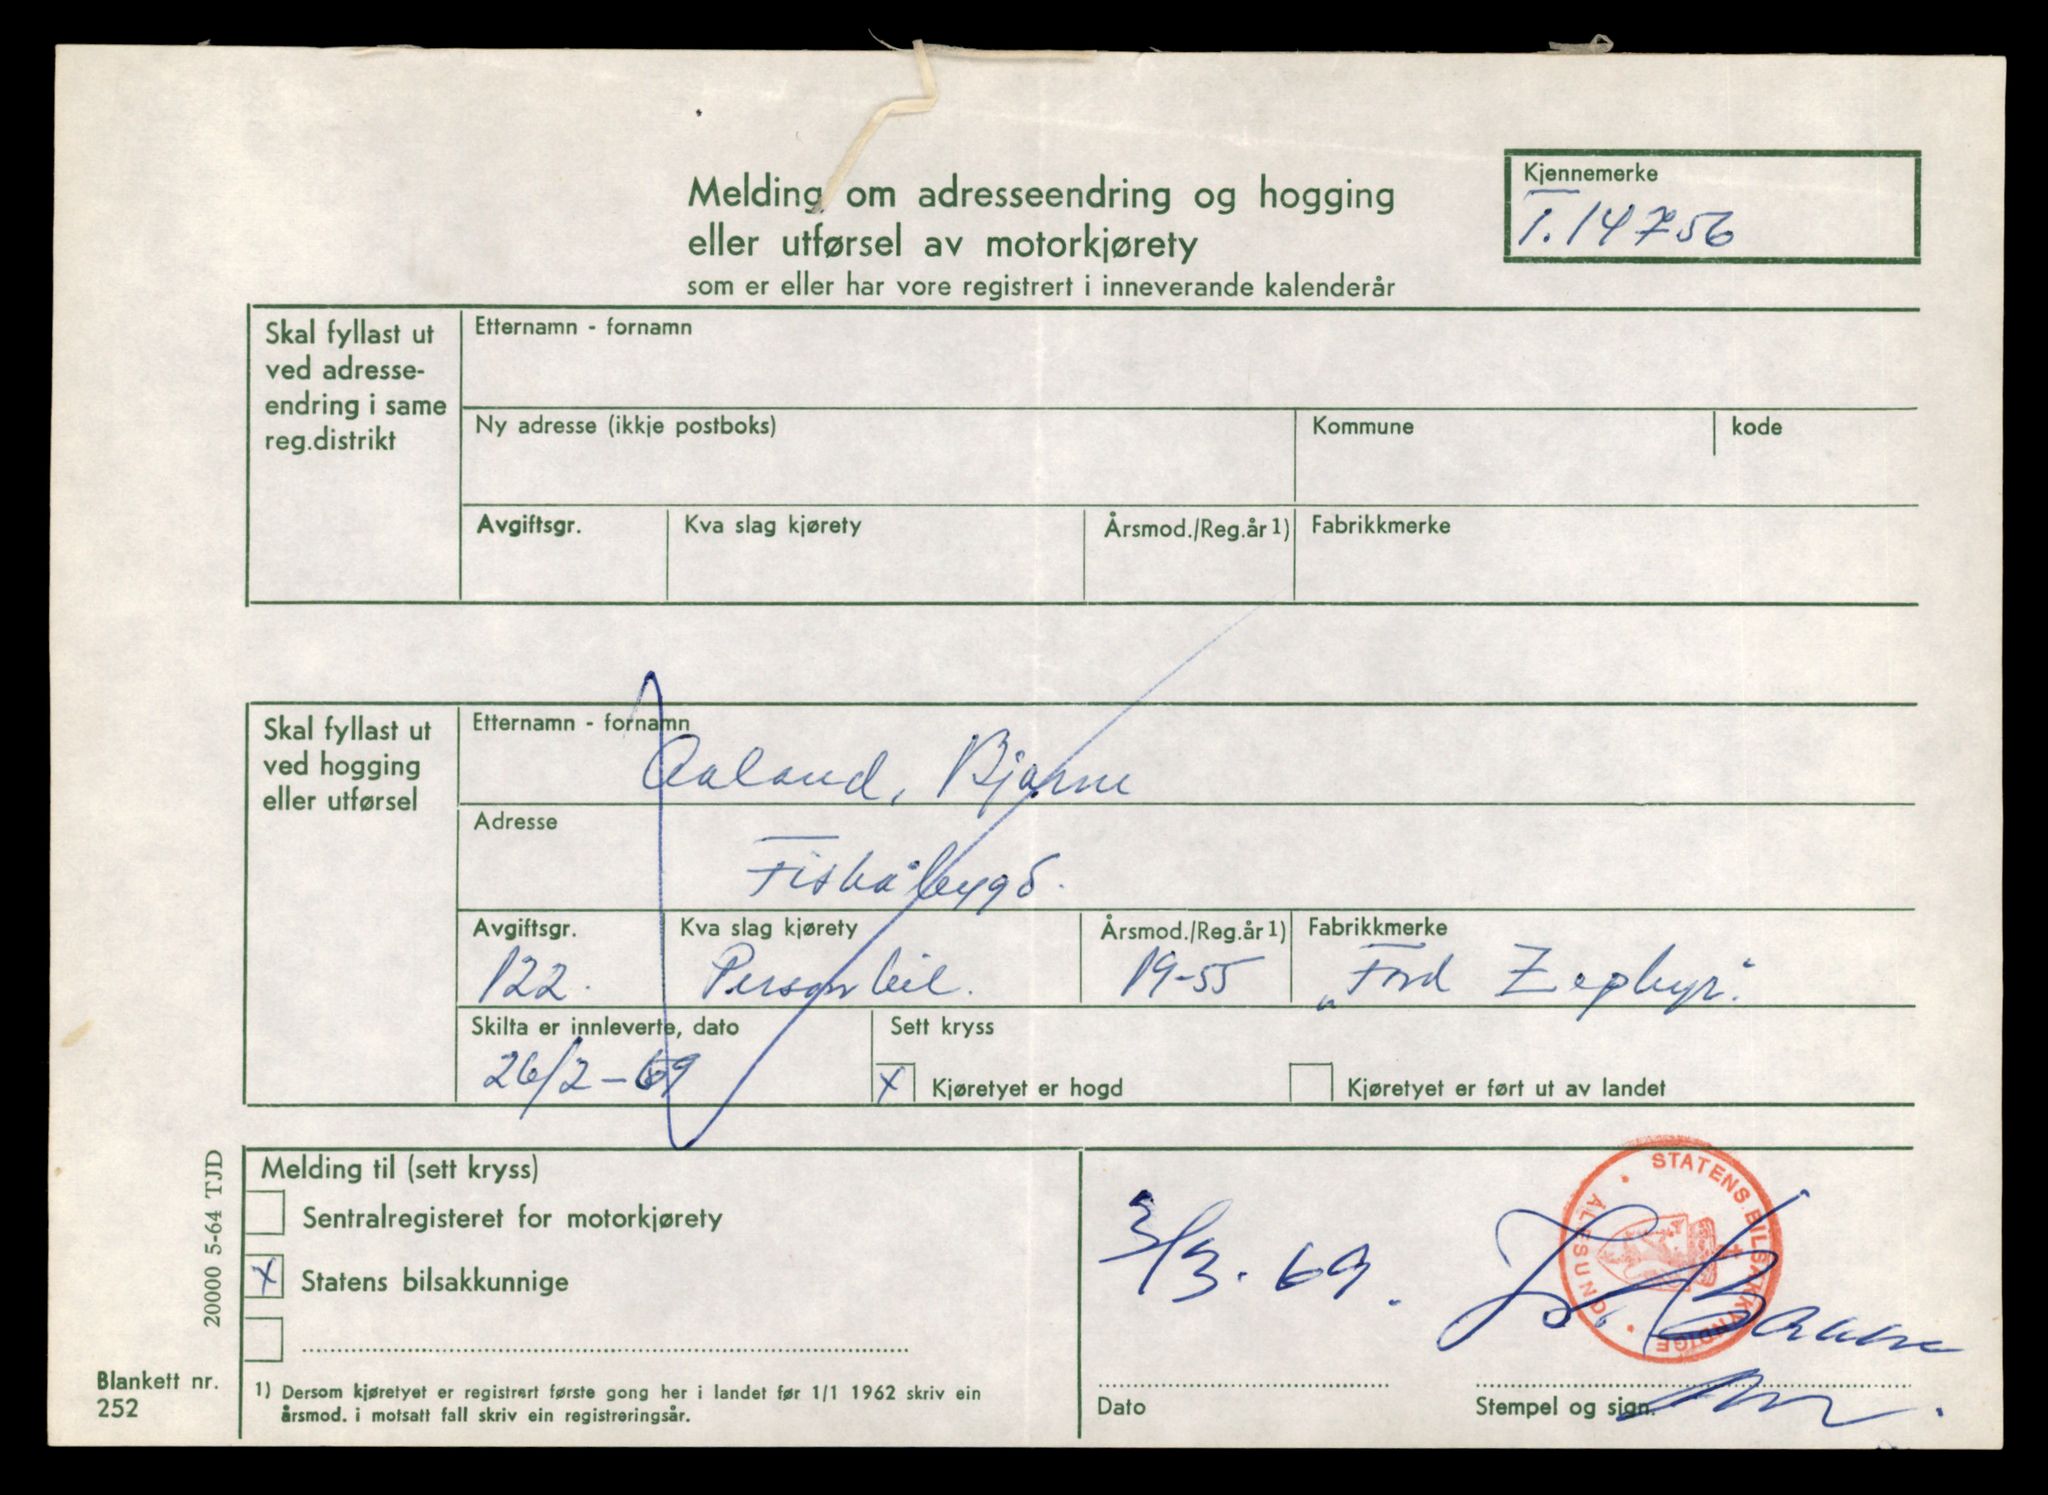 Melding om adresseendring og hogging
eller utførsel av motorkjørety
som er eller har vore registrert i inneverande kalenderår
Kjennemerke
T.14756
Skal fyllast ut
ved adresse-
endring i same
reg.distrikt
Etternamn - fornamn
Ny adresse (ikkje postboks)
Kommune
kode
Avgiftsgr.
Kva slag kjørety
Årsmod./Reg.år 1)
Fabrikkmerke
Skal fyllast ut
ved hogging
eller utførsel
Etternamn - fornamn
Aaland, Bjarne
Adresse
Fiskåbygd.
Avgiftsgr.
122.
Kva slag kjørety
Personbil.
Årsmod./Reg.år 1)
19-55
Fabrikkmerke
„Ford Zephyr".
Skilta er innleverte, dato
26/2-69
Sett kryss
x Kjøretyet er hogd
Kjøretyet er ført ut av landet
Melding til (sett kryss)
Sentralregisteret for motorkjørety
x Statens bilsakkunnige
1) Dersom kjøretyet er registrert første gong her i landet før 1/1 1962 skriv ein
årsmod. i motsatt fall skriv ein registreringsår.
3/3. 69.
Dato
STATENS BILSAKKYNDIGE
ÅLESUND
Stempel og sign.
20000 5-64 TJD
Blankett nr.
252